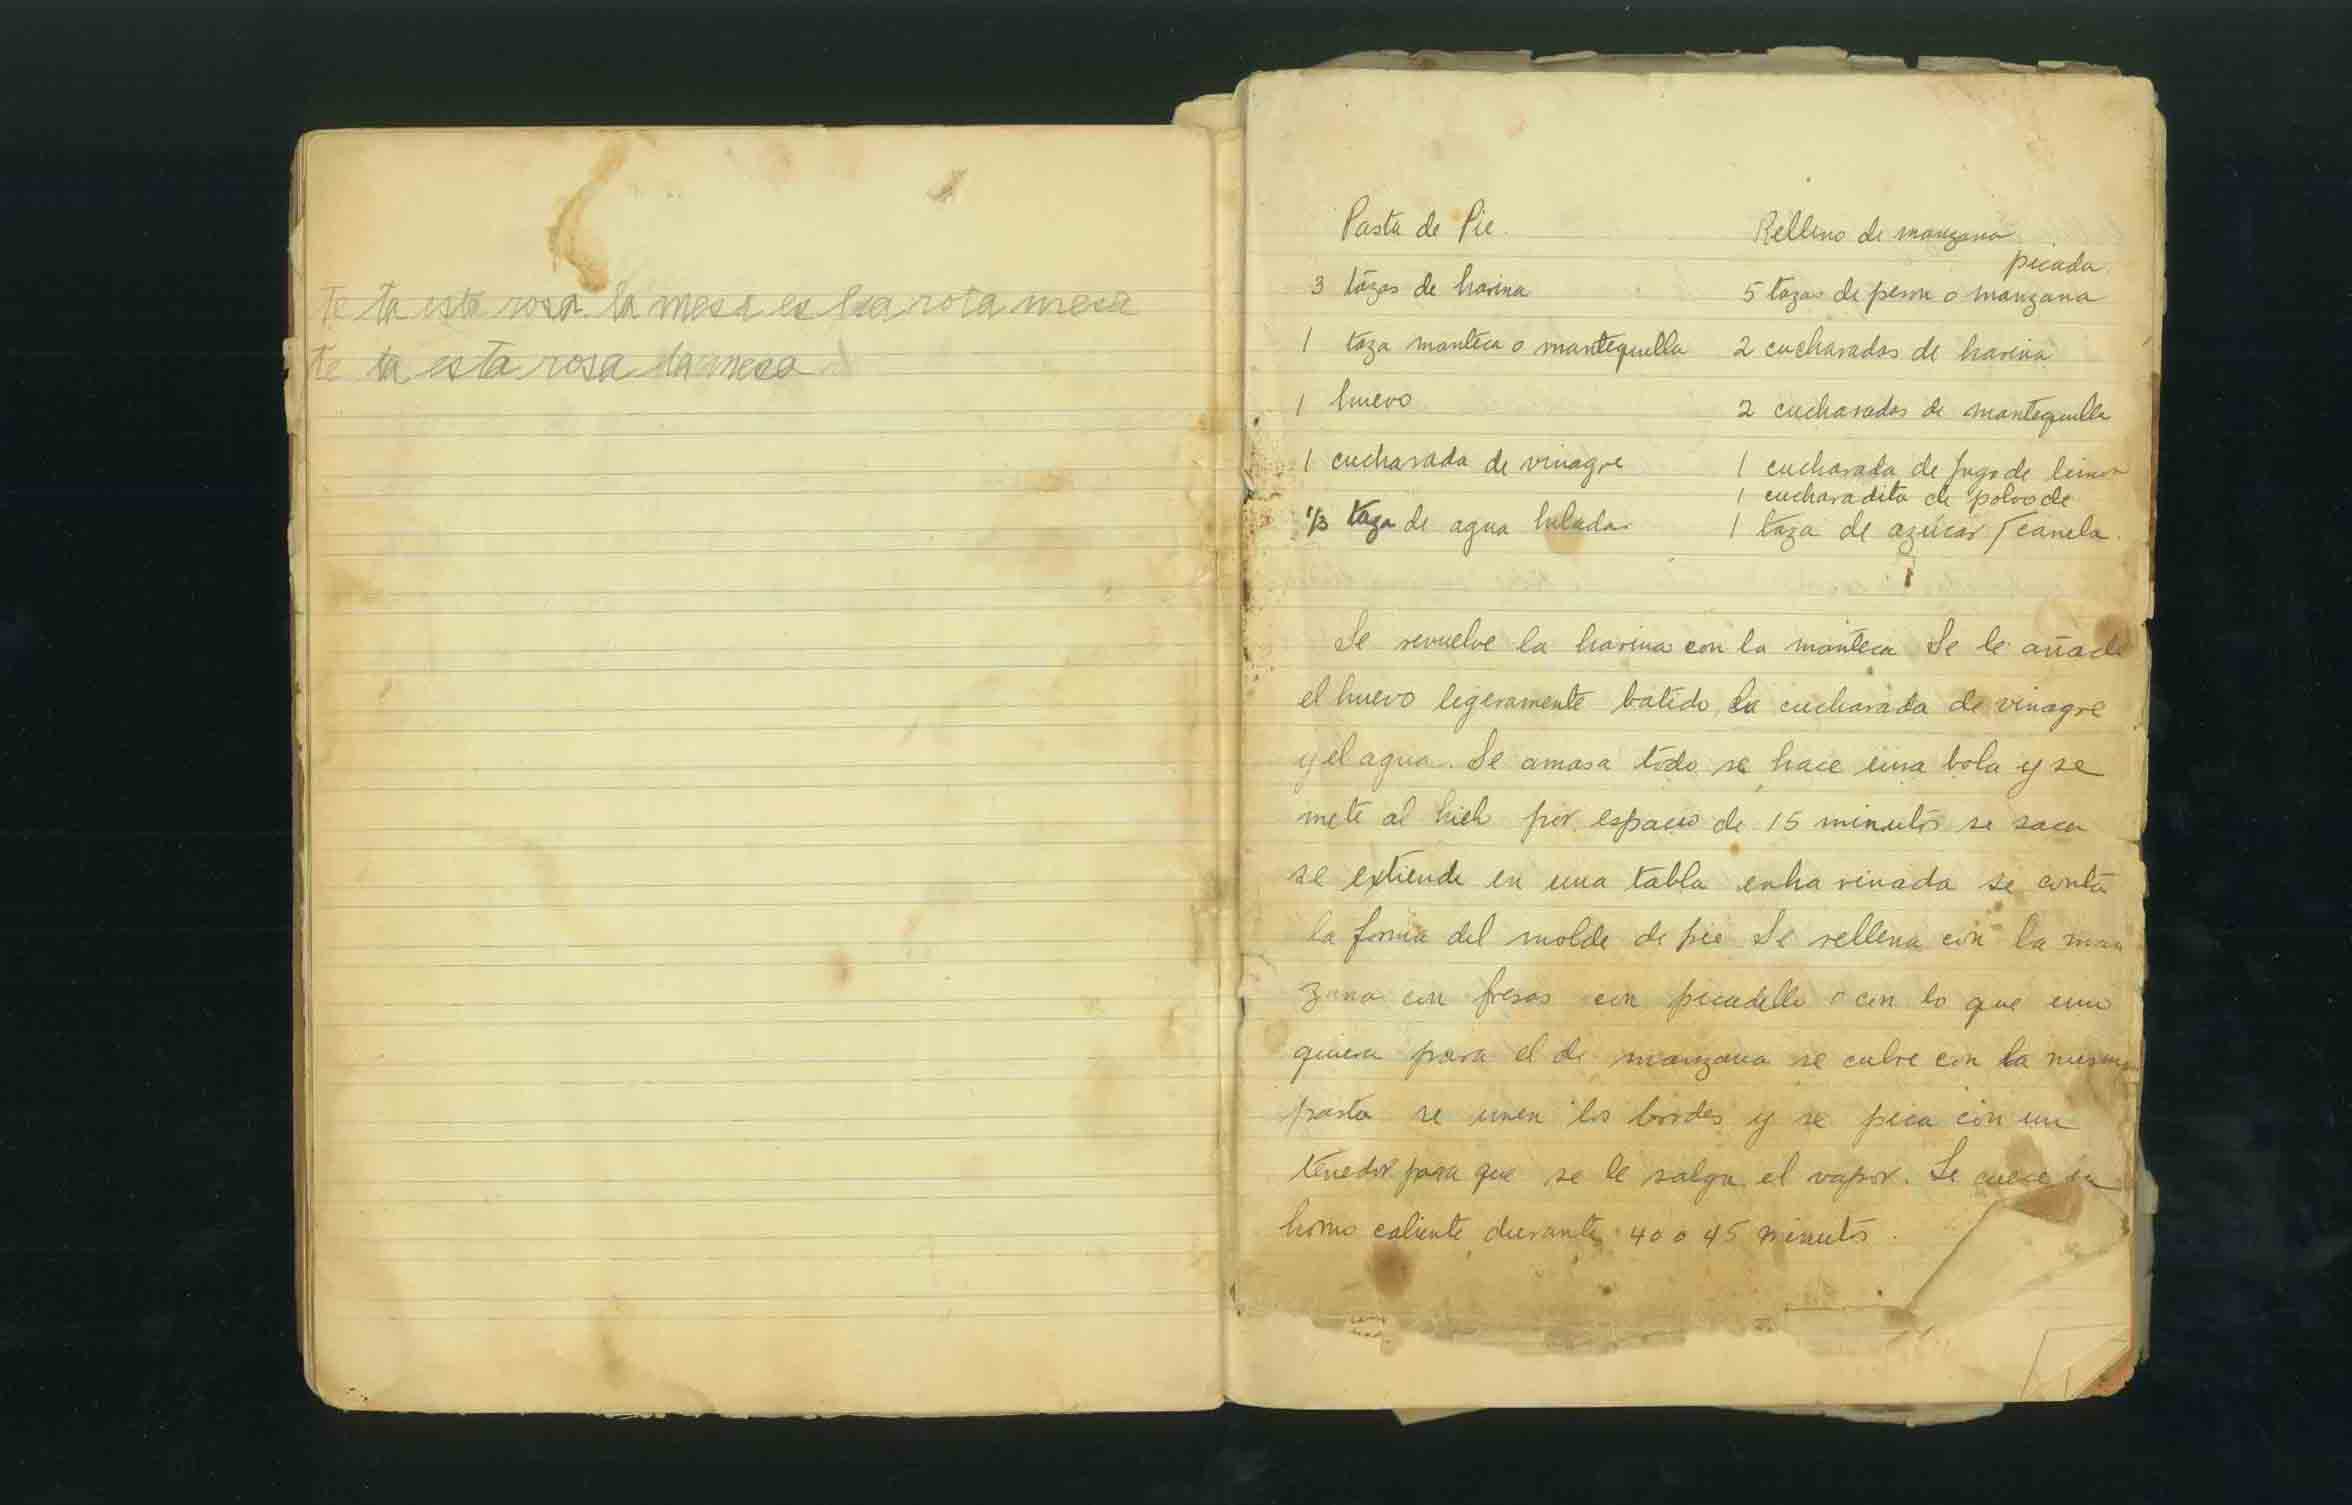 te ta esta rosa la mesa es rota mesa
te ta esta rosa la mesa
Pasta de Pie.
3 tazas de harina
1 taza manteca o mantequilla
1 huevo
1 cucharada de vinagre
1/3 taza de agua helada.
Relleno de manzana
picada
5 tazas de peron o manzana
2 cucharadas de harina
2 cucharadas de mantequilla
1 cucharada de jugo de limon
1 cucharadita de polvo de
1 taza de azúcar / canela.
Se revuelve la harina con la manteca Se le añade
el huevo ligeramente batido, la cucharada de vinagre
y el agua. Se amasa todo se hace una bola y se
mete al hielo por espacio de 15 minutos se saca
se extiende en una tabla enharinada se corta
la forma del molde de pie Se rellena con la man
zana con fresas con picadillo o con lo que uno
quiera para el de manzana se cubre con la misma
pasta se unen los bordes y se pica con un
tenedor para que se le salga el vapor. Se cuece en
horno caliente durante 40 o 45 minutos.